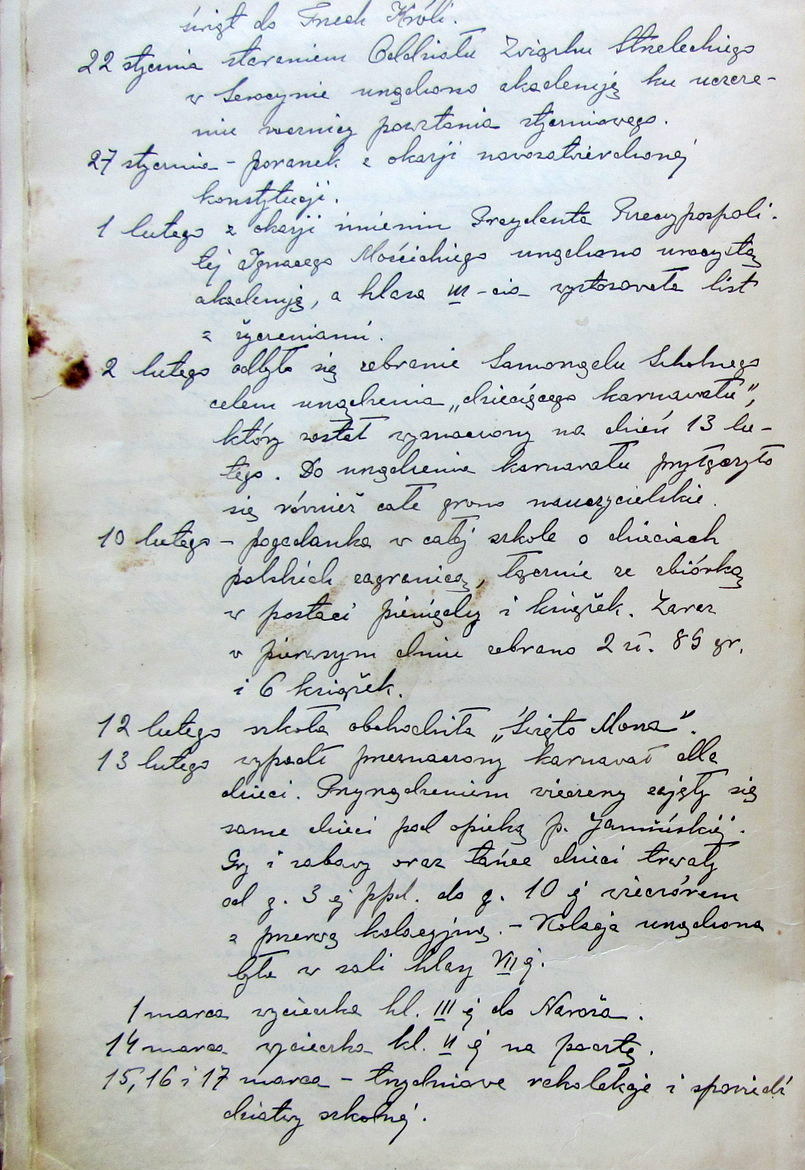 świąt do Trzech Króli.
22 stycznia staraniem Oddziału Związku Strzeleckiego
w Serocynie urządzono akademję ku uczcze-
niu rocznicy powstania styczniowego.
27 stycznia - poranek z okazji nowozatwierdzonej
konstytucji.
1 lutego z okazji imienin Prezydenta Rzeczypospoli-
tej Ignacego Mościckiego urządzono uroczystą
akademję, a klasa III-cia wystosowała list
z życzeniami.
2 lutego odbyło się zebranie Samorządu Szkolnego
celem urządzenia „dziecięcego karnawału",
który został wyznaczony na dzień 13 lu-
tego. Do urządzenia karnawału przyłączyło
się również całe grono nauczycielskie.
10 lutego - pogadanka w całej szkole o dzieciach
polskich zagranicą, łącznie ze zbiórką
w postaci pieniędzy i książek. Zaraz
w pierwszym dniu zebrano 2 zł. 85 gr.
i 6 książek.
12 lutego szkoła obchodziła „Święto Morza".
13 lutego wypadł przeznaczony karnawał dla
dzieci. Przyrządzeniem wieczerzy zajęły się
same dzieci pod opieką p. Jamińskiej.
Gry i zabawy oraz tańce dzieci trwały
od g. 3 ej ppd. do g. 10 ej wieczorem
z przerwą kolacyjną. - Kolacja urządzona
była w sali klasy VII ej.
1 marca wycieczka kl. III ej do Naroża.
14 marca wycieczka kl. II ej na pocztę.
15, 16 i 17 marca - trzydniowe rekolekcje i spowiedź
dziatwy szkolnej.